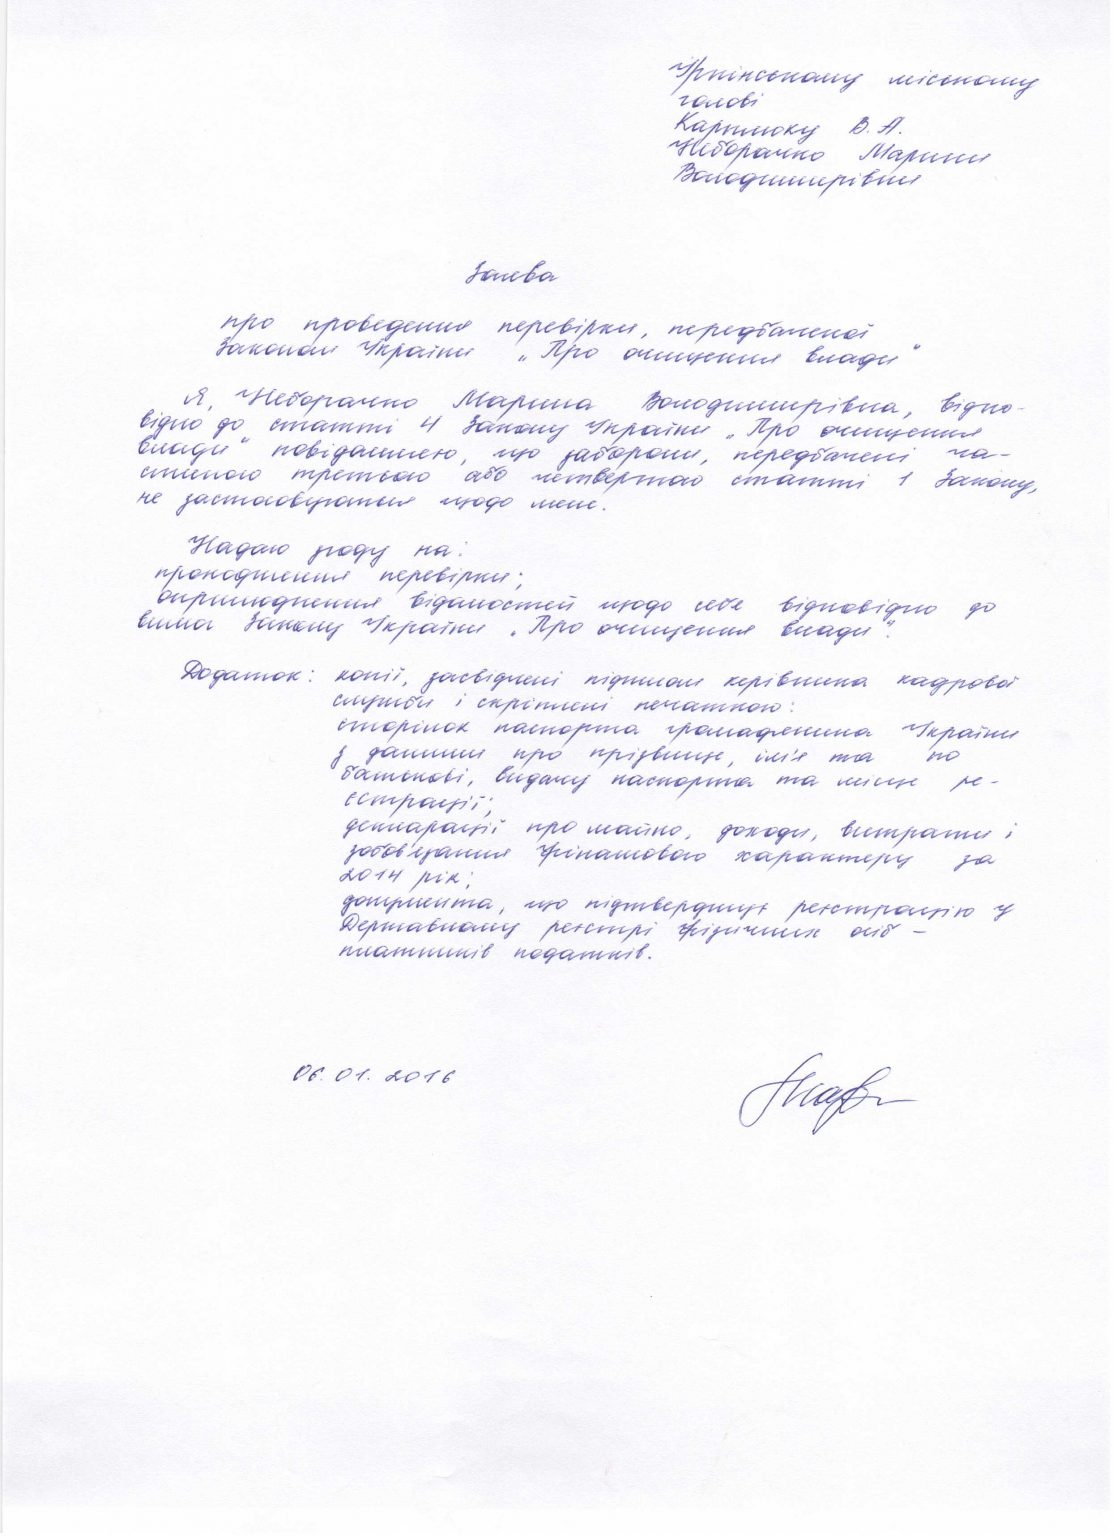 Ірпінському міському
голові
Карплюку В.А.
Неборачко Марини
Володимирівни
Заява
про проведення перевірки, передбаченої
Законом України „Про очищення влади"
Я, Неборачко Марина Володимирівна, відпо-
відно до статті 4 Закону України „Про очищення
влади" повідомляю, що заборони, передбачені ча-
стиною третьою або четвертою статті 1 Закону,
не застосовуються щодо мене.
Надаю згоду на:
проходження перевірки;
оприлюднення відомостей щодо себе відповідно до
вимог Закону України „Про очищення влади".
Додаток: копії, засвідчені підписом керівника кадрової
служби і скріплені печаткою:
сторінок паспорта громадянина України
з даними про прізвище, ім'я та по
батькові, видачу паспорта та місце ре-
єстрації;
декларації про майно, доходи, витрати і
зобов'язання фінансового характеру за
2014 рік;
документа, що підтверджує реєстрацію у
Державному реєстрі фізичних осіб -
платників податків.
06.01.2016